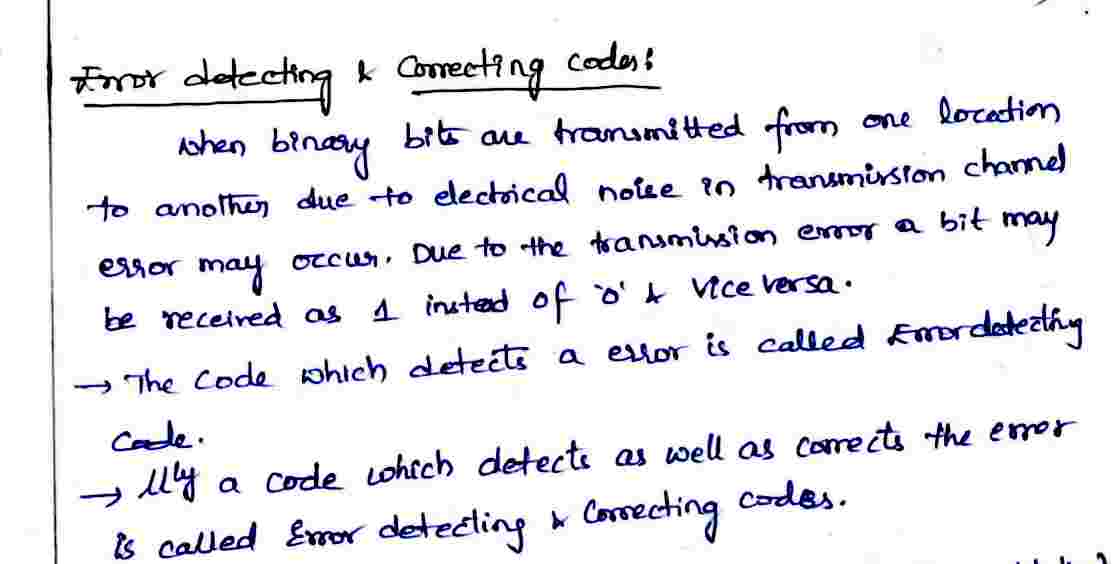 Error detecting & Correcting codes:
when binary bits are transmitted from one location
to another due to electrical noise in transmission channel
error may occur. Due to the transmission error a bit may
be received as 1 insted of '0' & vice versa.
→ The code which detects a error is called Error detecting
Code.
→ lllly a code which detects as well as corrects the error
is called Error detecting & Correcting codes.